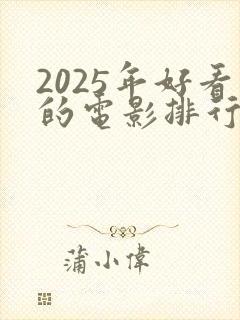 2025年好看
的電影排行
蒲小偉